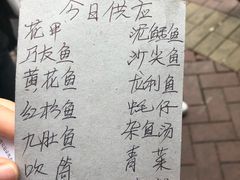 今日供应
花甲 泥鯭鱼
石友鱼 沙尖鱼
黄花鱼 龙利鱼
红杉鱼 蚝仔
九肚鱼 杂鱼汤
吹筒 青菜